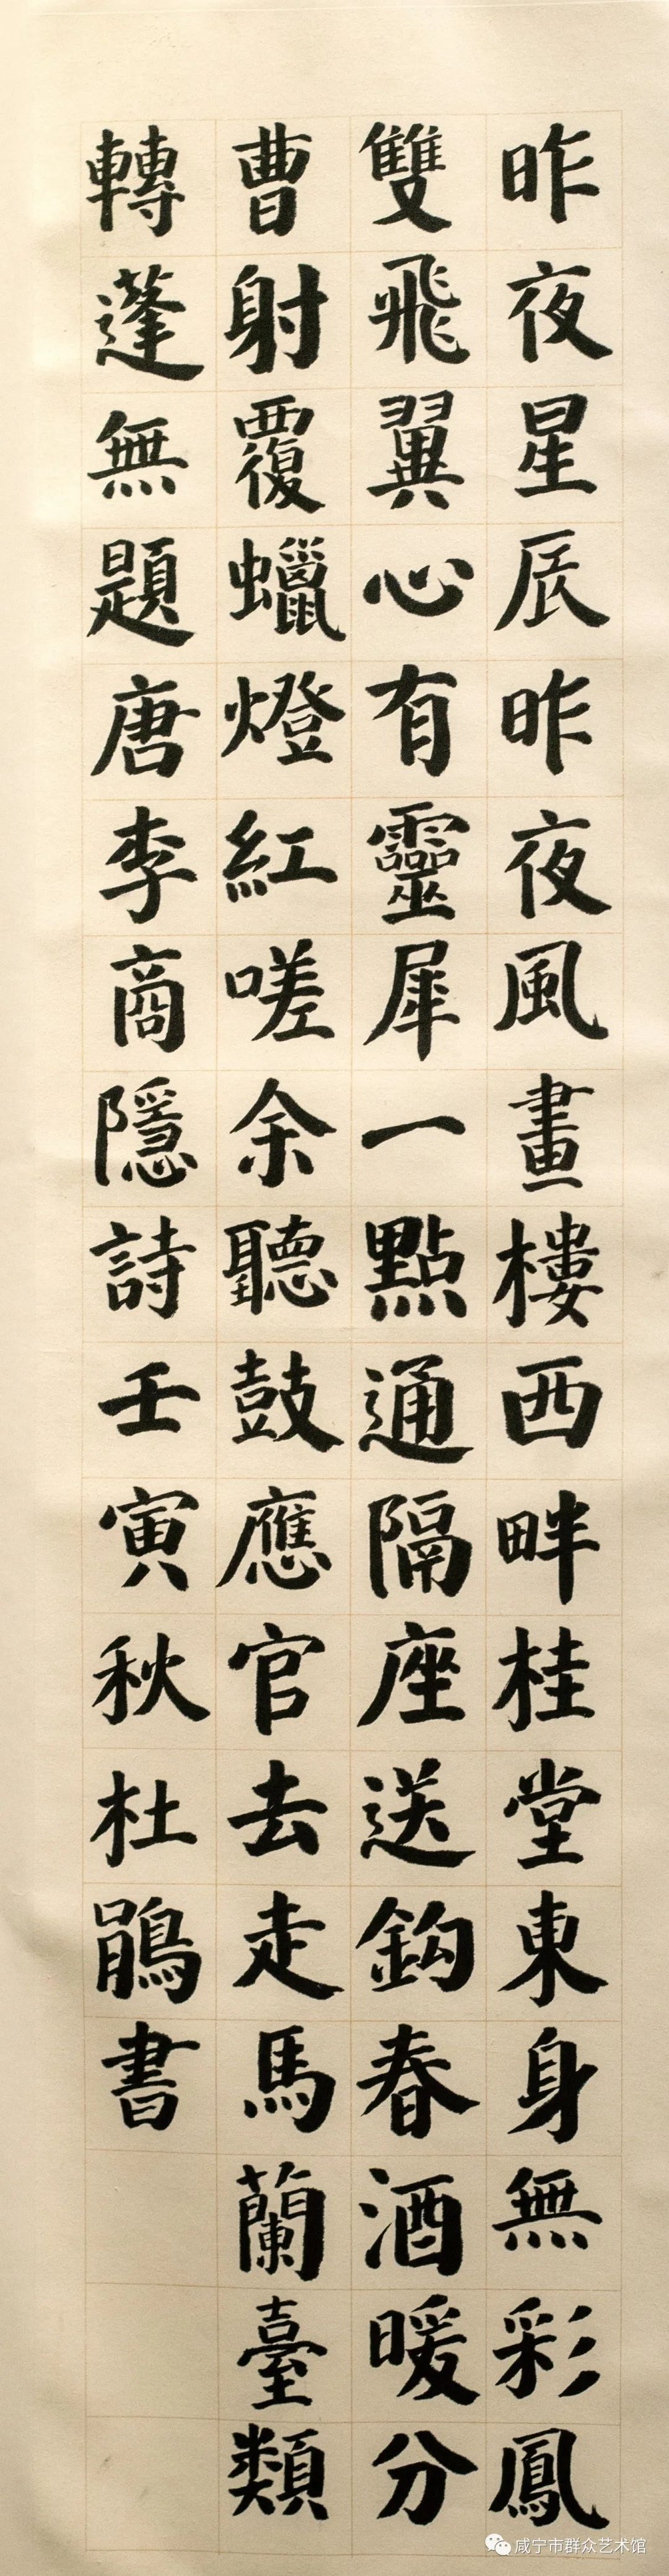 昨夜星辰昨夜風畫樓西畔桂堂東身無彩鳳
雙飛翼心有靈犀一點通隔座送鈎春酒暖分
曹射覆蠟燈紅嗟余聽鼓應官去走馬蘭臺類
轉蓬無題唐李商隱詩壬寅秋杜鵑書
咸宁市群众艺术馆